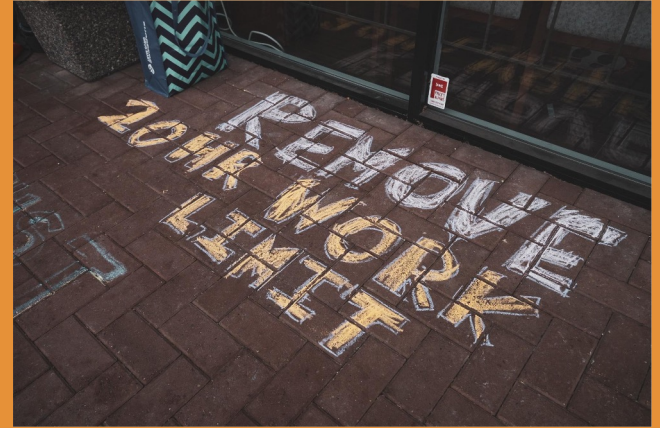 REMOVE
20HR WORK
LIMIT